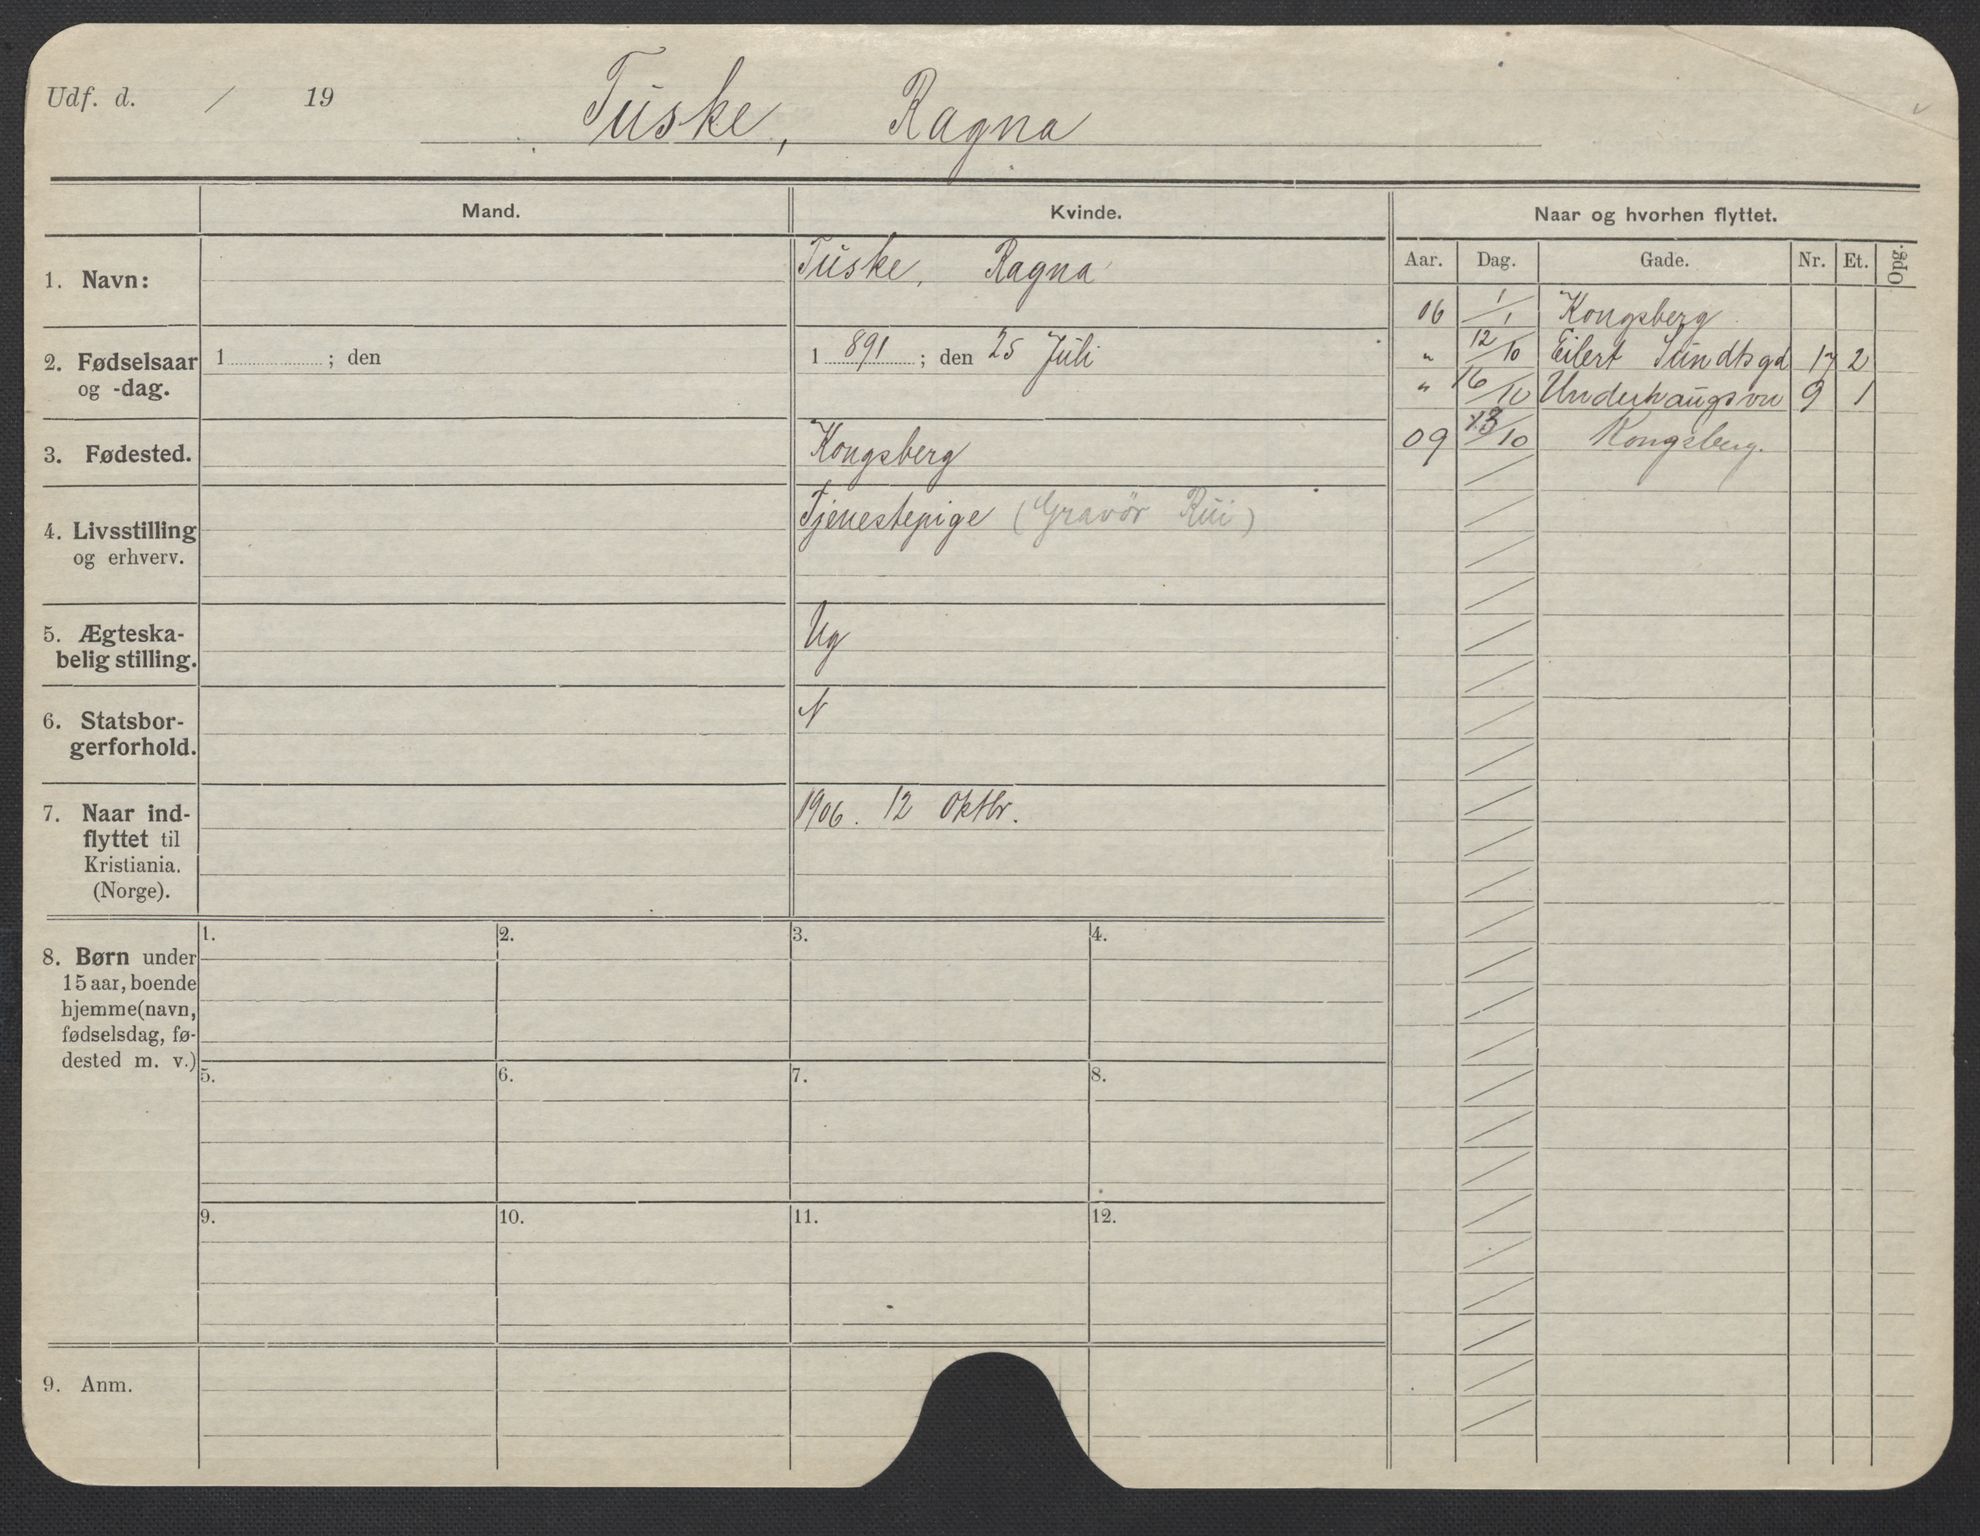 Udf. d. / 19
Tuske, Ragna
Mand.
Kvinde.
Naar og hvorhen flyttet.
Aar. Dag. Gade. Nr. Et. Opg.
1. Navn:
Tuske, Ragna
2. Fødselsaar
og -dag.
1 ; den
1 891 ; den 25 Juli
3. Fødested.
Kongsberg
4. Livsstilling
og erhverv.
Tjenestepige (Gravör Rui)
5. Ægteska-
belig stilling.
Ug
6. Statsbor-
gerforhold.
N
7. Naar ind-
flyttet til
Kristiania.
(Norge).
1906. 12 Oktbr.
06 1/1 Kongsberg
" 12/10 Eilert Sundtsgd 17 2
" 16/10 Underhaugsvn 9 1
09 13/10 Kongsberg.
8. Børn under
15 aar, boende
hjemme (navn,
fødselsdag, fø-
dested m. v.)
1. 2. 3. 4.
5. 6. 7. 8.
9. 10. 11. 12.
9. Anm.